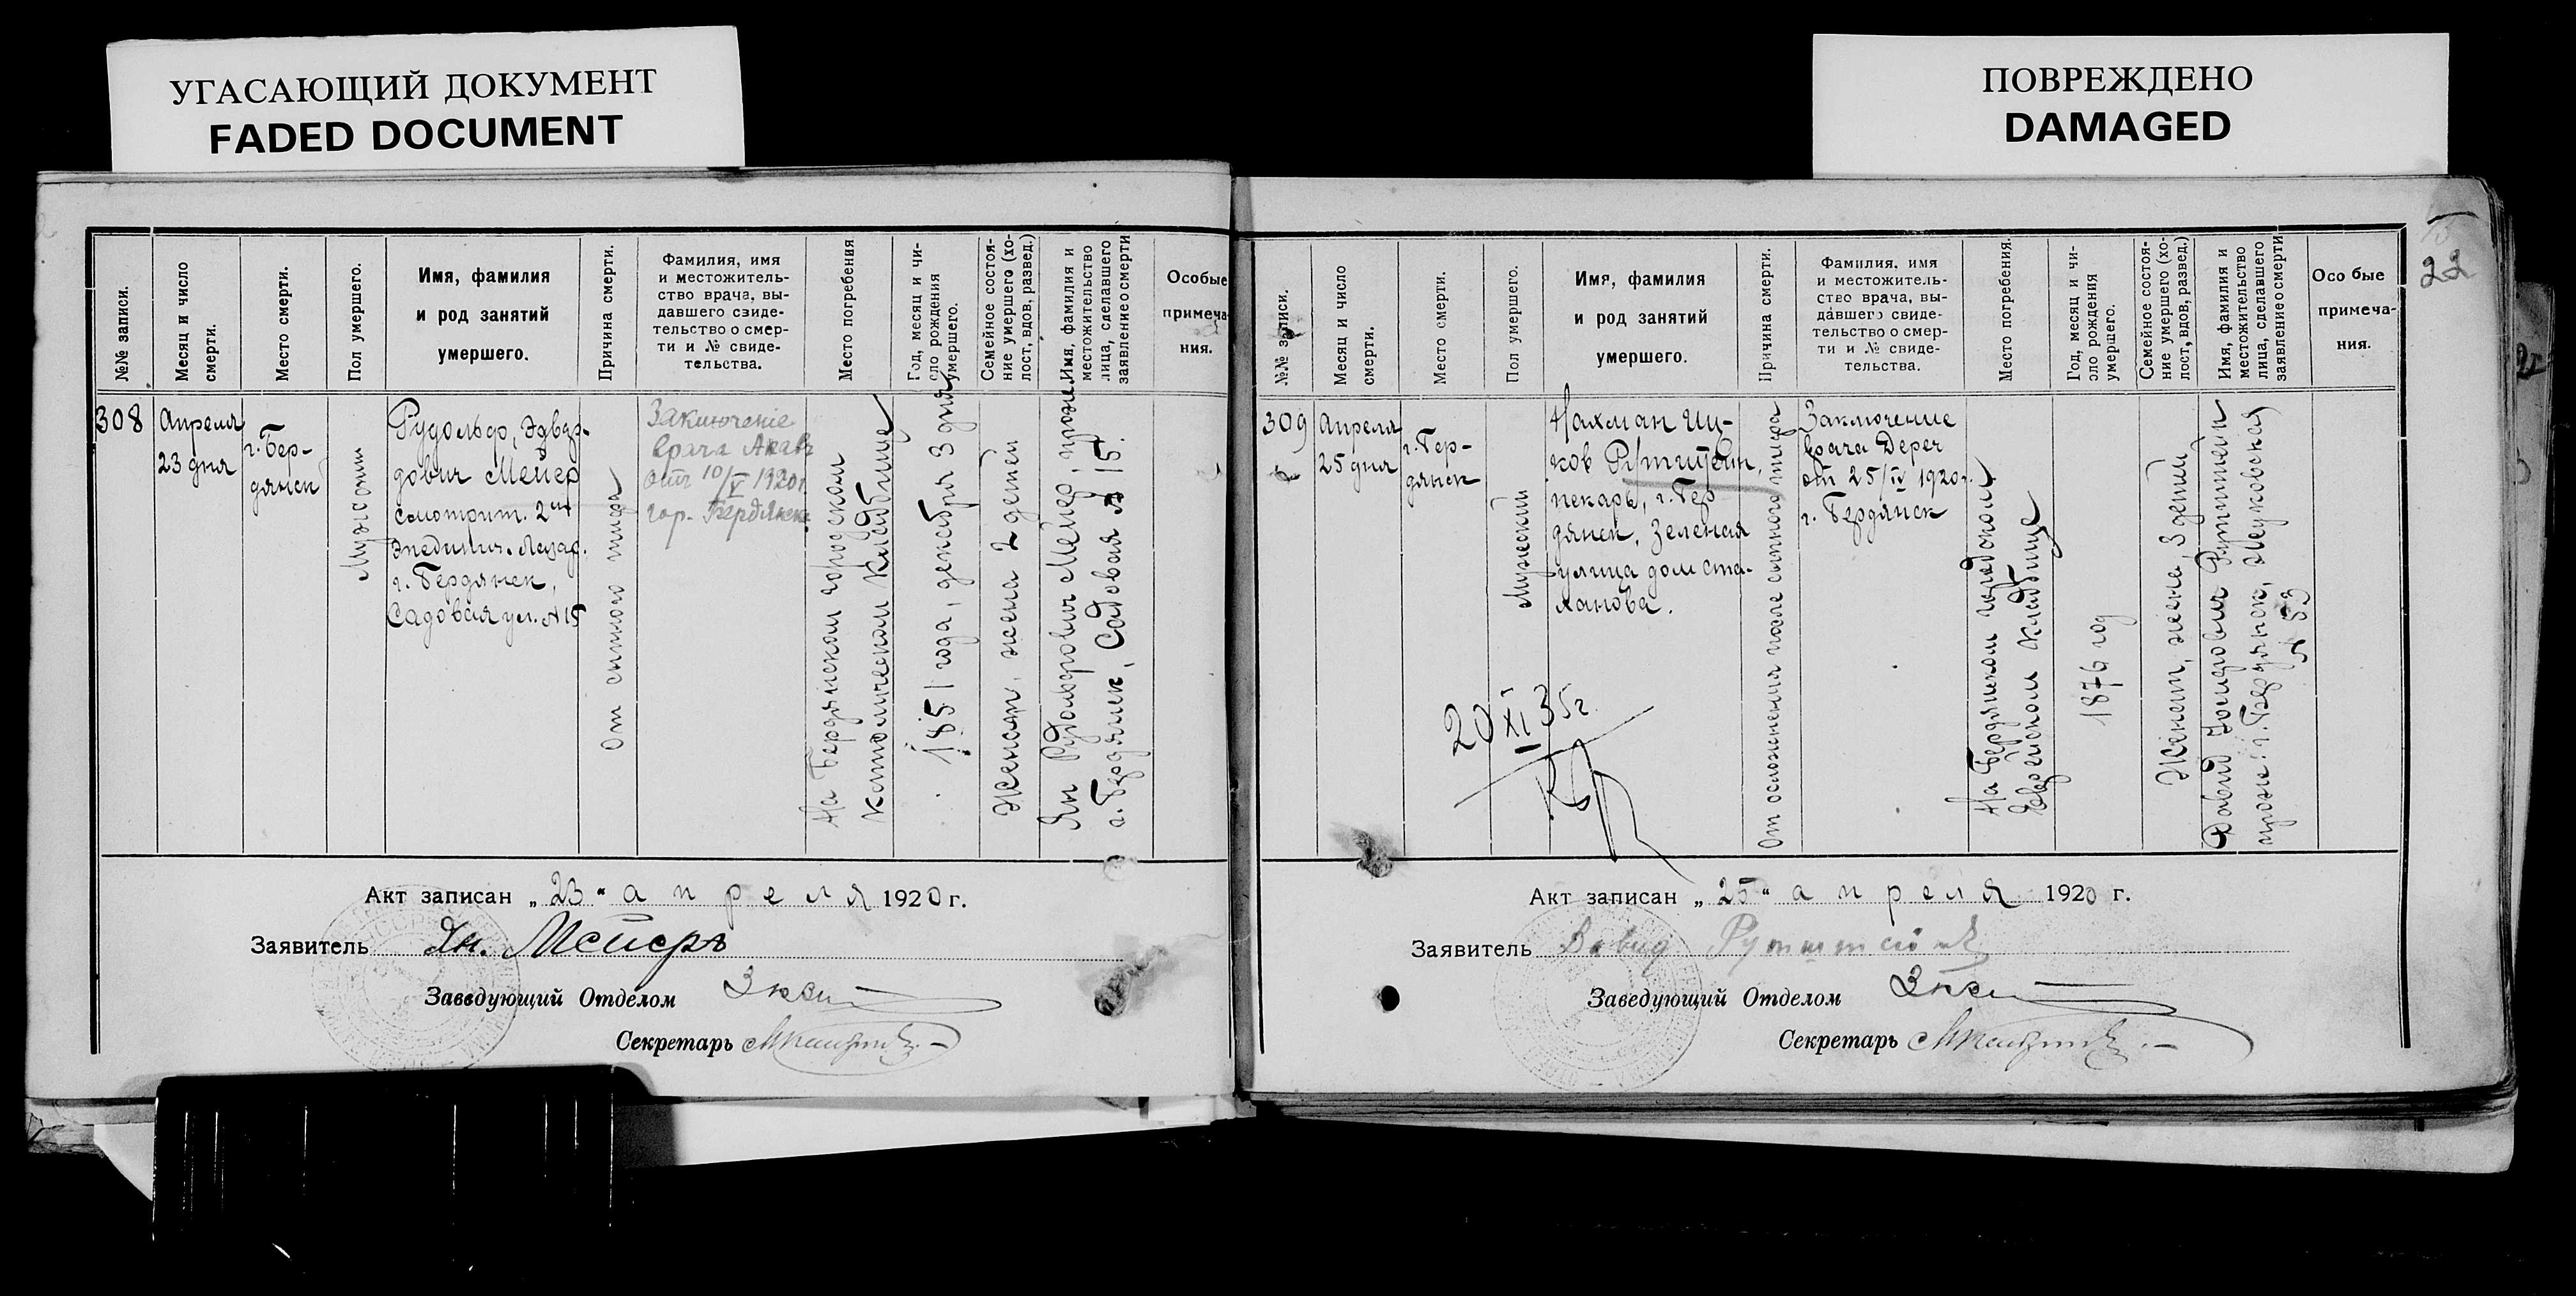 УГАСАЮЩИЙ ДОКУМЕНТ
FADED DOCUMENT
ПОВРЕЖДЕНО
DAMAGED
№№ записи.
Месяц и число
смерти.
Место смерти.
Пол умершего.
Имя, фамилия
и род занятий
умершего.
Причина смерти.
Фамилия, имя
и местожитель-
ство врача, вы-
давшего свиде-
тельство о смер-
ти и № свиде-
тельства.
Место погребения
Год, месяц и чи-
сло рождения
умершего.
Семейное состоя-
ние умершего (хо-
лост, вдов, развед.)
Имя, фамилия и
местожительство
лица, сделавшего
заявление о смерти
Особые
примеча-
ния.
308
Апреля
23 дня
г. Бер-
дянск
Мужской
Рудольф, Эдвар-
дович Мейер
смотрит. 2го
эпедимич. Лазар.
г. Бердянск,
Садовая ул. № 15
От сыпного тифа
Заключеніе
врача
отъ 10/V 1920 г.
гор. Бердянск
На Бердянском городском
католическом кладбище
1851 года, декабря 3 дня
Женат, жена 2 детей
Ян Рудольфович Мейер, прожи.
г. Бердянск, Садовая № 15.
Акт записан „23“ апреля 1920 г.
Заявитель Ян. Мейеръ
Заведующий Отделом
Секретарь
22
№№ записи.
Месяц и число
смерти.
Место смерти.
Пол умершего.
Имя, фамилия
и род занятий
умершего.
Причина смерти.
Фамилия, имя
и местожитель-
ство врача, вы-
давшего свиде-
тельство о смер-
ти и № свиде-
тельства.
Место погребения.
Год, месяц и чи-
сло рождения
умершего.
Семейное состоя-
ние умершего (хо-
лост, вдов, развед.)
Имя, фамилия и
местожительство
лица, сделавшего
заявление о смерти
Особые
примеча-
ния.
309
Апреля
25 дня
г. Бер-
дянск
Мужеский
Нахман Иц-
ков Рутштейн,
пекарь, г. Бер
дянск, Зеленая
улица дом Ста-
ханова.
От осложнения после сыпного тифа
Заключение
врача Дереч
от 25/IV 1920 г.
г. Бердянск
На Бердянском городском
Еврейском кладбище
1876 год
Женат, жена, 3 детей
Давид Рутштейн
прожи. г. Бердянск, Жуковская
№ 53
20 XI 35 г.
Акт записан „25“ апреля 1920 г.
Заявитель Давид Рутштейн
Заведующий Отделом
Секретарь